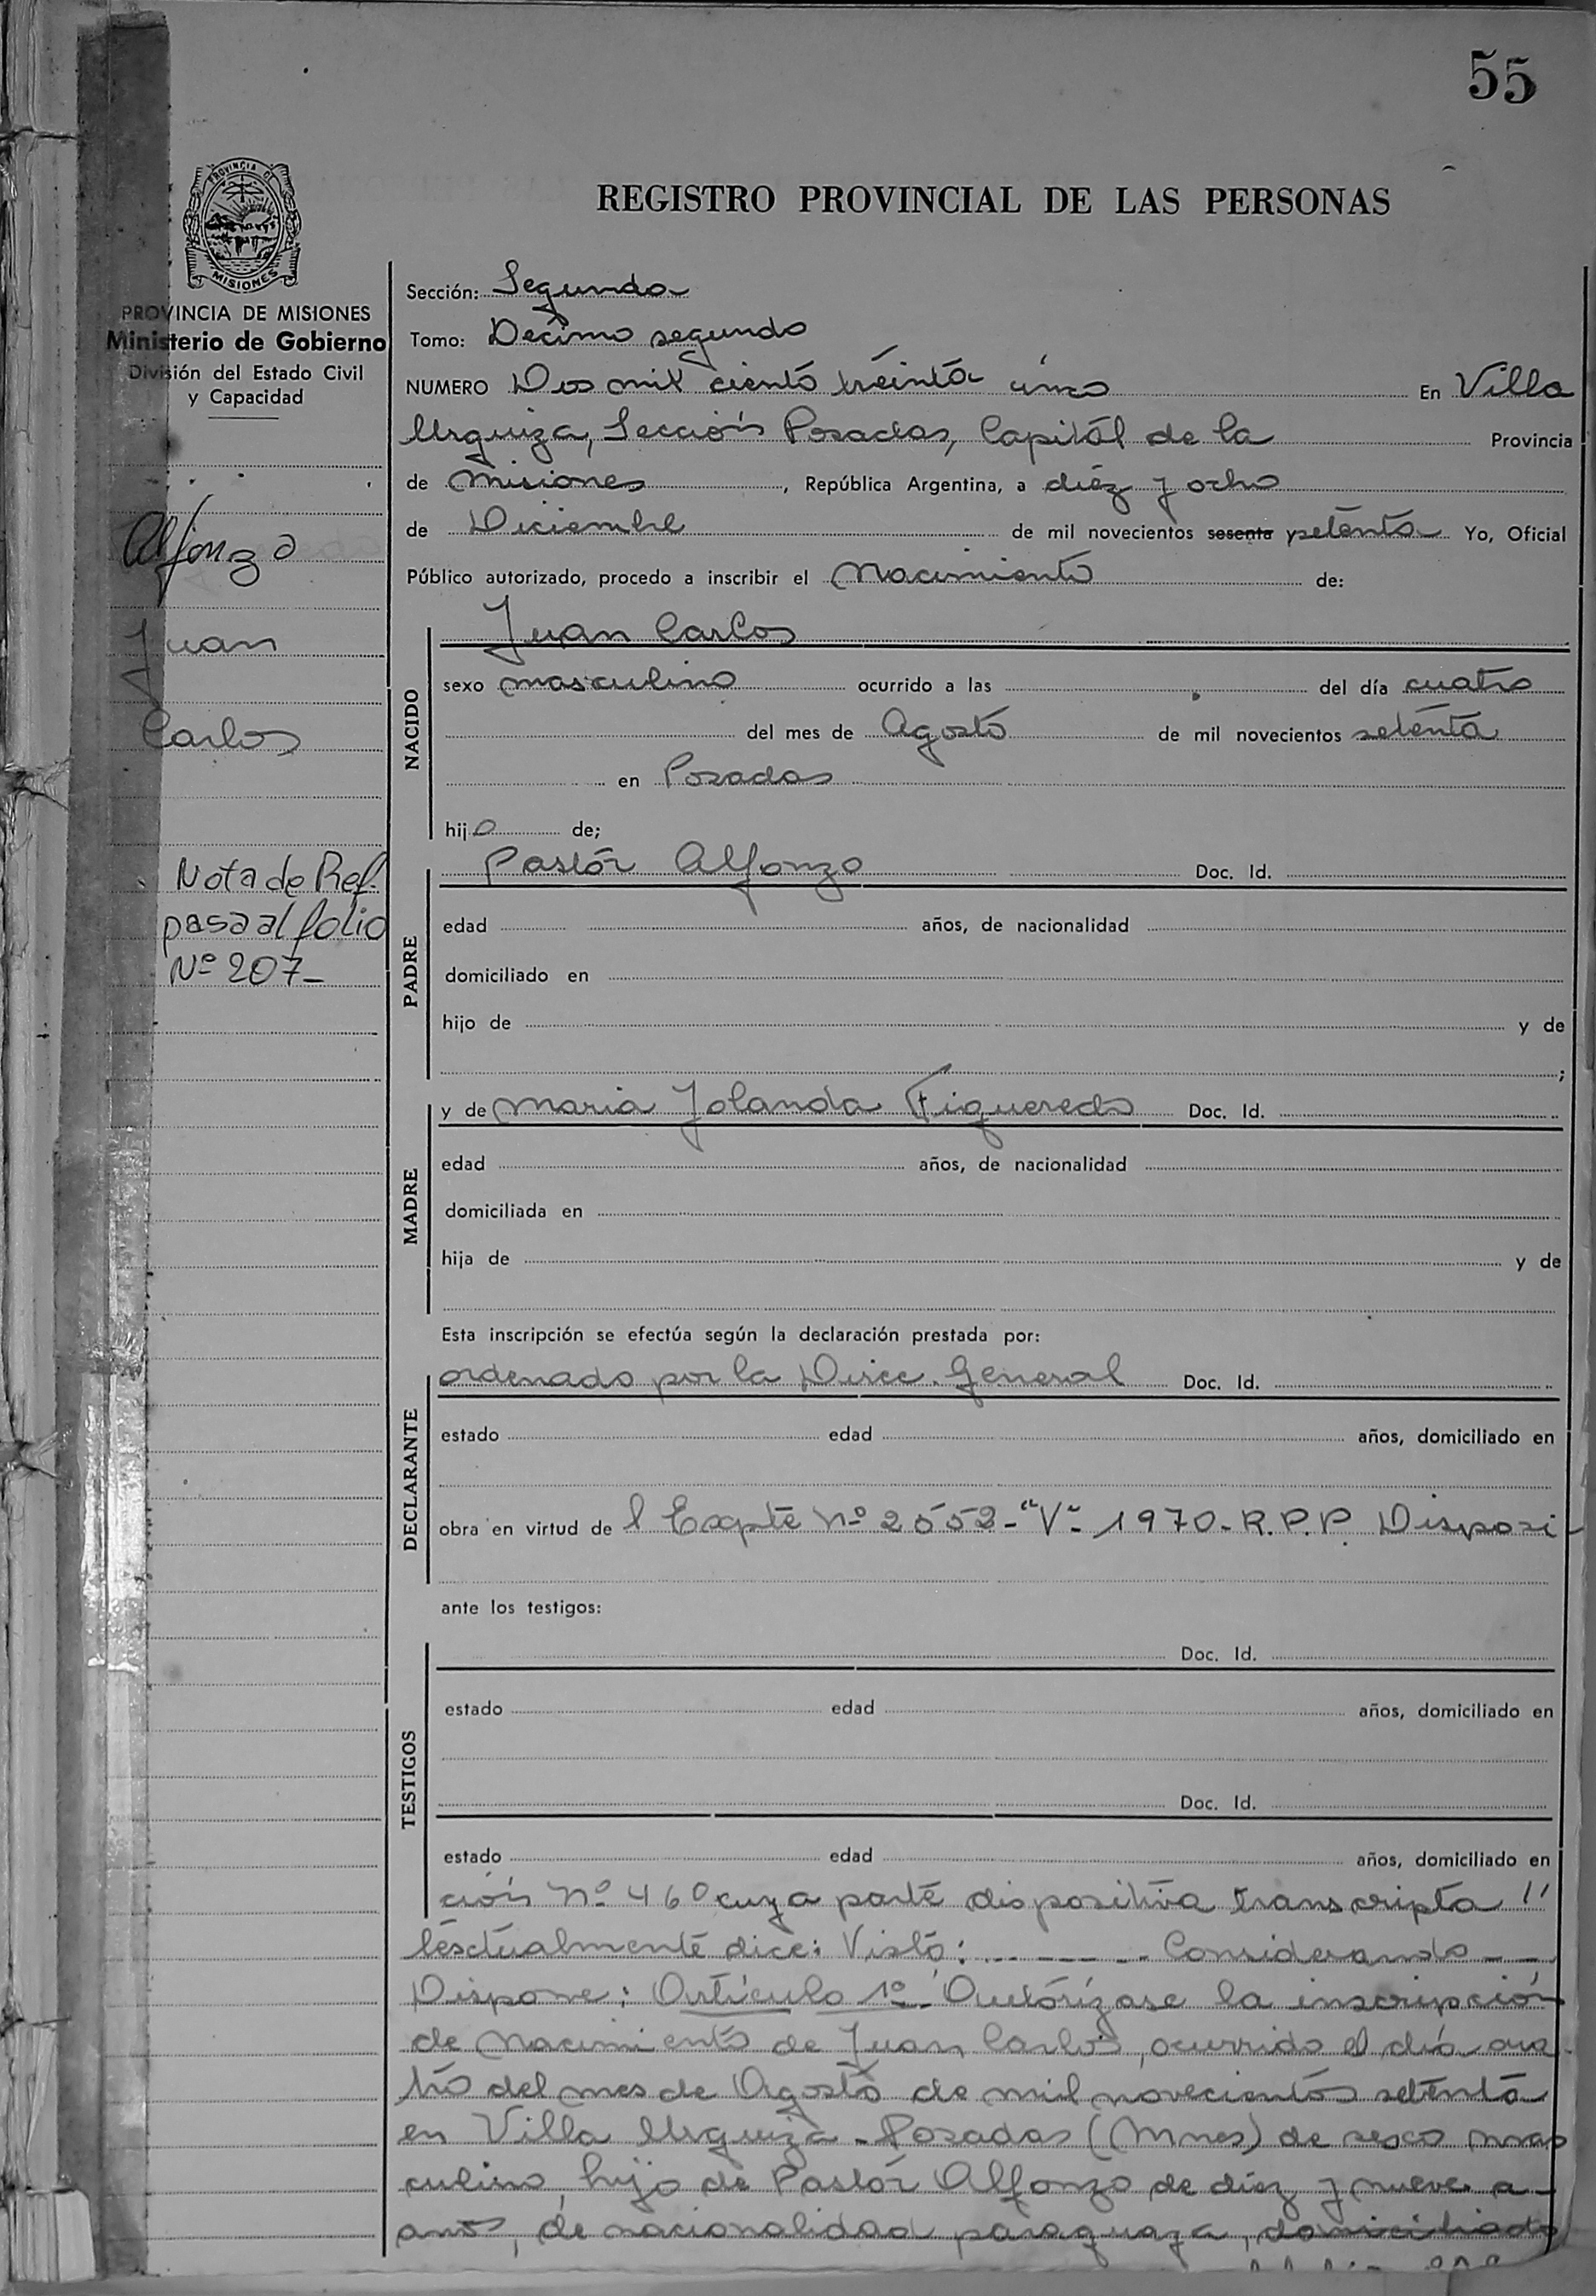 55
PROVINCIA DE
MISIONES
REGISTRO PROVINCIAL DE LAS PERSONAS
PROVINCIA DE MISIONES
Ministerio de Gobierno
División del Estado Civil
y Capacidad
Alfonzo
Juan
Carlos
Nota de Ref.
pasa al folio
Nº 207-
Sección: Segunda
Tomo: Decimo segundo
NUMERO Dos mil ciento treinta cinco En Villa
Urquiza, Sección Posadas, Capital de la Provincia
de Misiones, República Argentina, a diéz y ocho
de Diciembre de mil novecientos sesenta setenta Yo, Oficial
Público autorizado, procedo a inscribir el Nacimiento de:
NACIDO
Juan Carlos
sexo masculino ocurrido a las del día cuatro
del mes de Agosto de mil novecientos setenta
en Posadas
hijo de;
PADRE
Pastór Alfonzo Doc. Id.
edad años, de nacionalidad
domiciliado en
hijo de y de
;
MADRE
y de Maria Yolanda Figueredo Doc. Id.
edad años, de nacionalidad
domiciliada en
hija de y de
Esta inscripción se efectúa según la declaración prestada por:
DECLARANTE
ordenado por la Direc. General Doc. Id.
estado edad años, domiciliado en
obra en virtud de l Expte Nº 2552-"V"-1970-R.P.P. Disposi-
ante los testigos:
TESTIGOS
Doc. Id.
estado edad años, domiciliado en
Doc. Id.
estado edad años, domiciliado en
ción Nº 460 cuya parte dispositiva transcripta
textualmente dice: Visto: - - - - - Considerando - -
Dispone: Artículo 1º Autórizase la inscripción
de nacimiento de Juan Carlos, ocurrido el día cua
tro del mes de Agosto de mil novecientos setenta
en Villa Urquiza - Posadas (Mnes) de sexo mas
culino, hijo de Pastór Alfonzo de diez y nueve a-
anos, de nacionalidad paraguaya, domiciliado